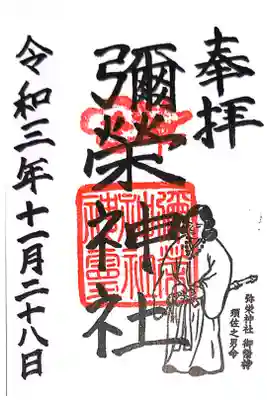 奉拝
彌榮神社
弥栄神社 御祭神
須佐之男命
令和三年十一月二十八日